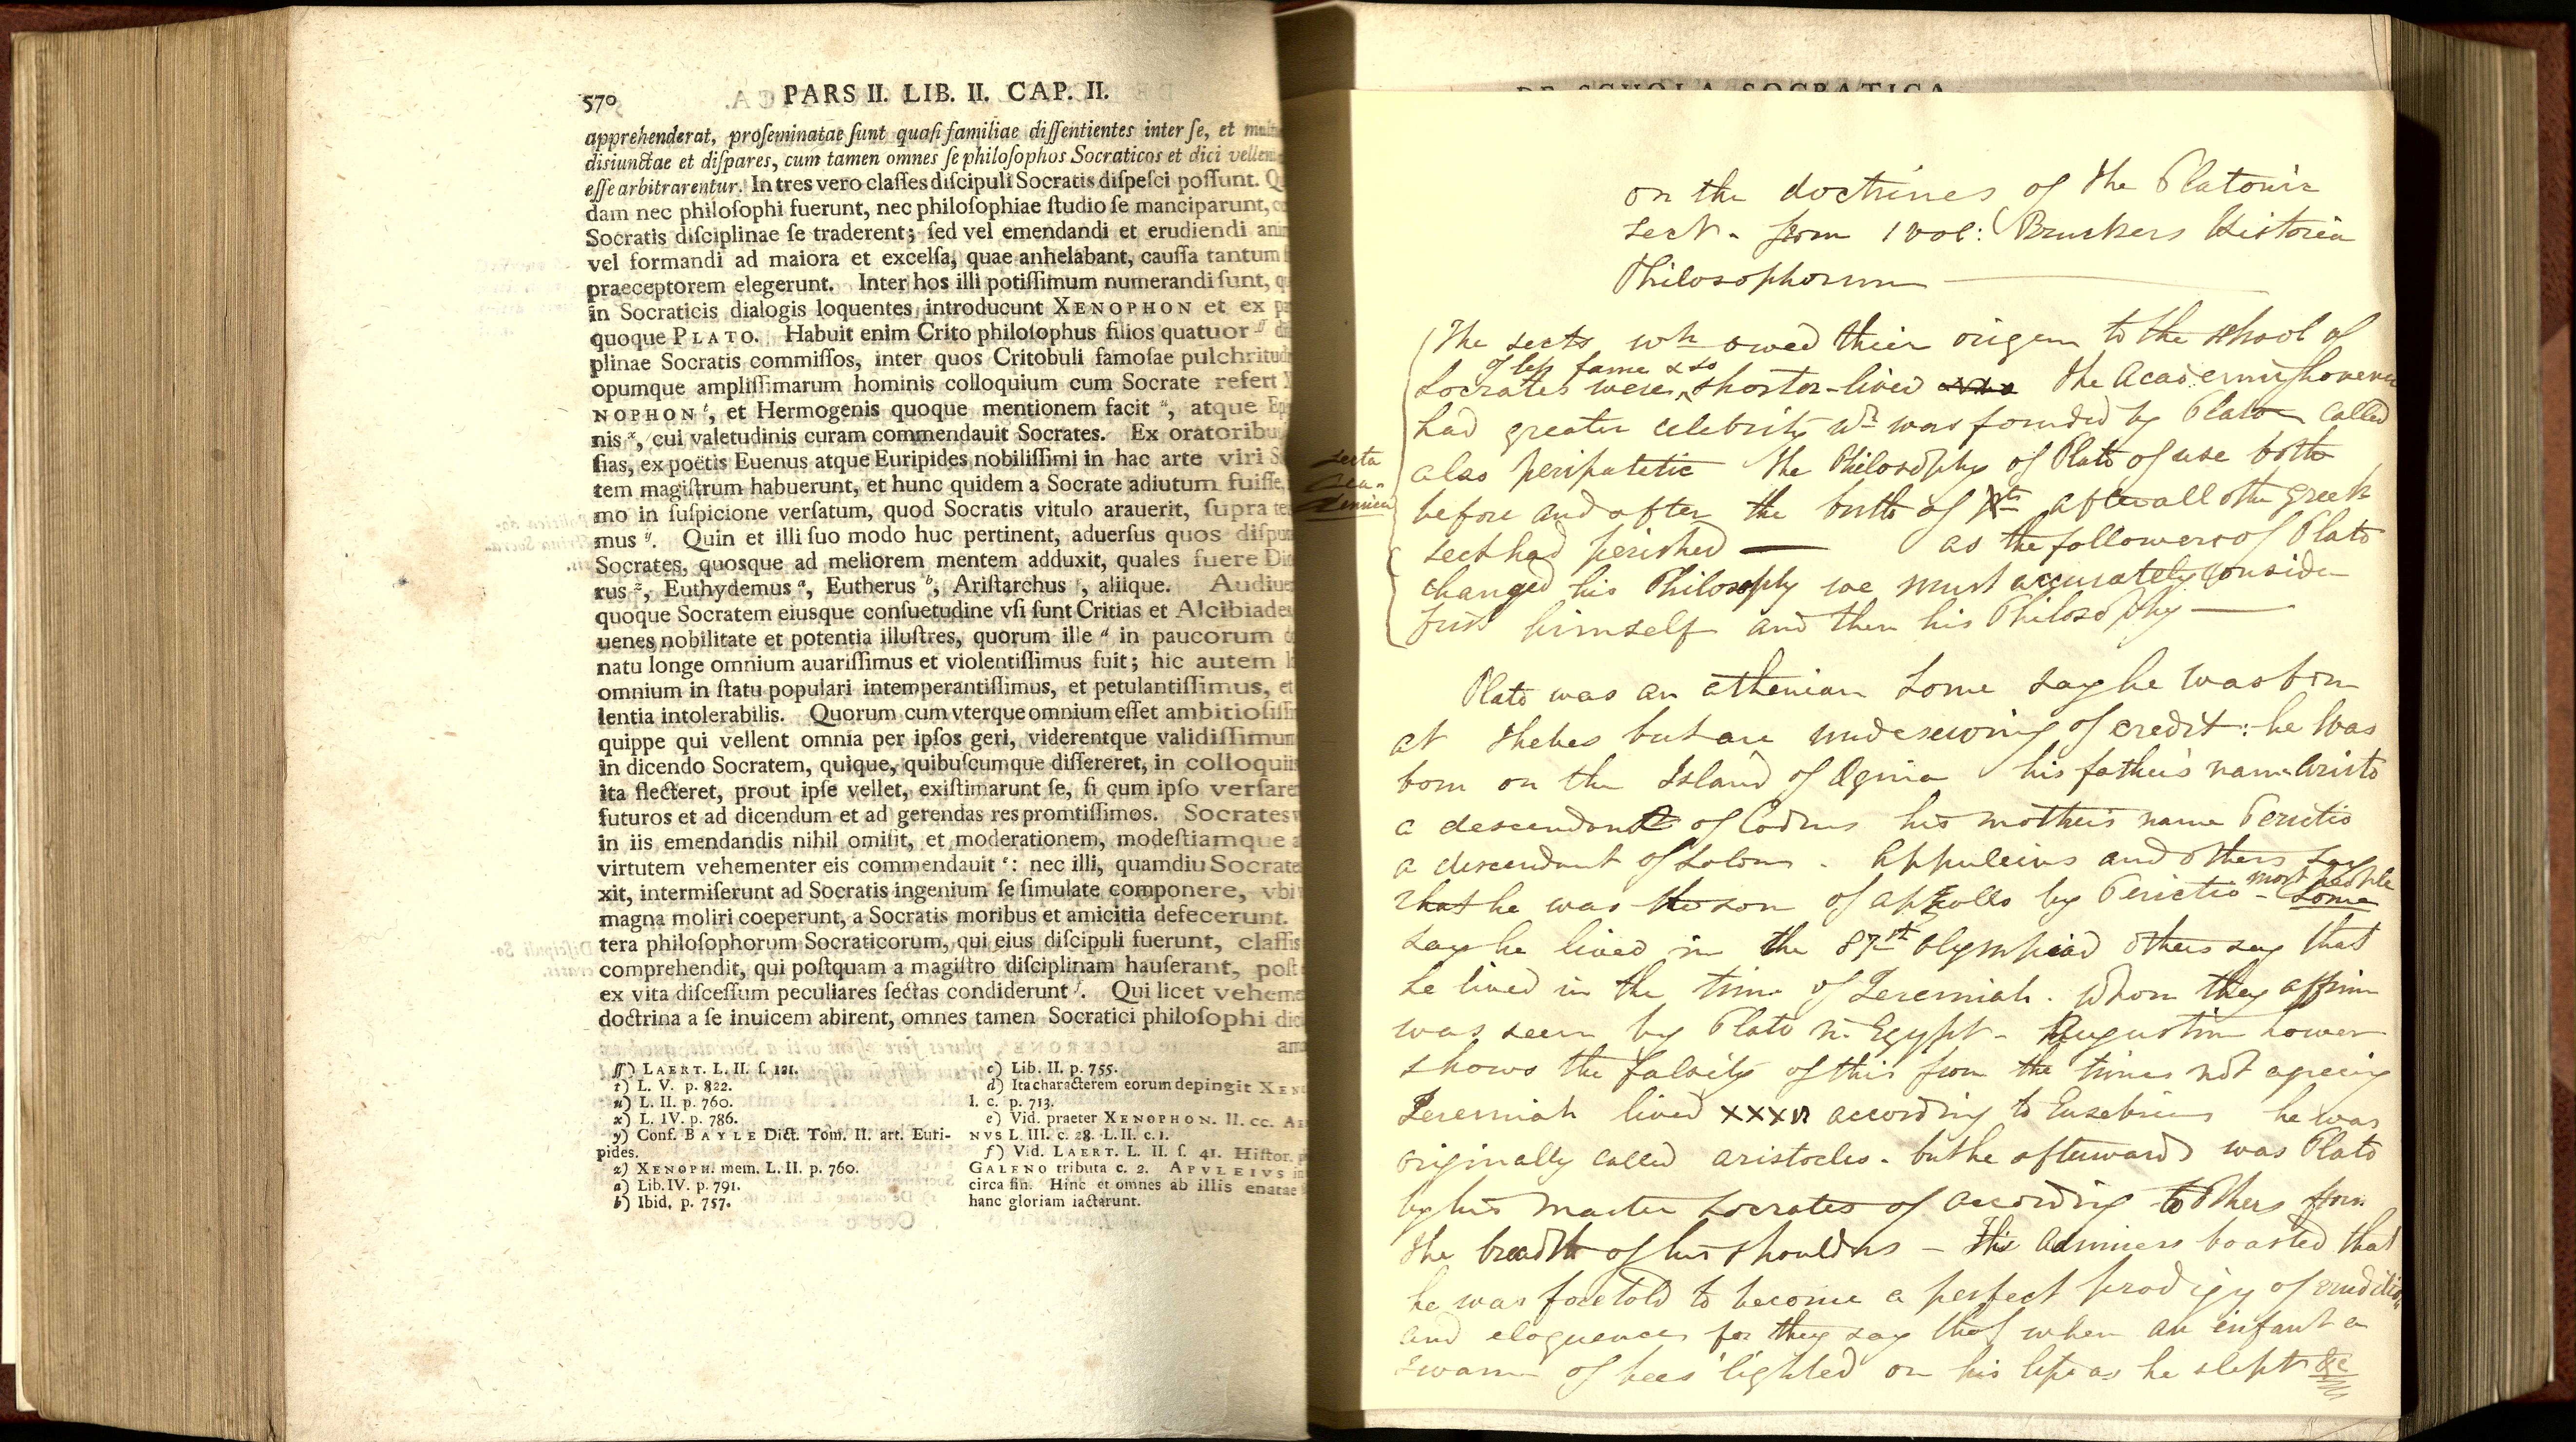 570 PARS II. LIB. II. CAP. II.
apprehenderat, proſeminatae ſunt quaſi familiae diſſentientes inter ſe, et
disiunctae et diſpares, cum tamen omnes ſe philoſophos Socraticos et dici
eſſe arbitrarentur. In tres vero claſſes diſcipuli Socratis diſpeſci poſſunt.
dam nec philoſophi fuerunt, nec philoſophiae ſtudio ſe manciparunt,
Socratis diſciplinae ſe traderent; ſed vel emendandi et erudiendi
vel formandi ad maiora et excelſa, quae anhelabant, cauſſa tantum
praeceptorem elegerunt. Inter hos illi potiſſimum numerandi ſunt,
in Socraticis dialogis loquentes introducunt XENOPHON et ex
quoque PLATO. Habuit enim Crito philoſophus filios quatuor ſſ
plinae Socratis commiſſos, inter quos Critobuli famoſae
opumque ampliſſimarum hominis colloquium cum Socrate refert
NOPHON t, et Hermogenis quoque mentionem facit u, atque
nis x, cui valetudinis curam commendauit Socrates. Ex
ſias, ex poëtis Euenus atque Euripides nobiliſſimi in hac arte viri
tem magiſtrum habuerunt, et hunc quidem a Socrate adiutum fuiſſe,
mo in ſuſpicione verſatum, quod Socratis vitulo arauerit, ſupra
mus y. Quin et illi ſuo modo huc pertinent, aduerſus quos
Socrates, quosque ad meliorem mentem adduxit, quales fuere
rus z, Euthydemus a, Eutherus b, Ariſtarchus c, aliique.
quoque Socratem eiusque conſuetudine vſi ſunt Critias et
uenes nobilitate et potentia illuſtres, quorum ille d in paucorum
natu longe omnium auariſſimus et violentiſſimus fuit; hic autem
omnium in ſtatu populari intemperantiſſimus, et petulantiſſimus, et
lentia intolerabilis. Quorum cum vterque omnium eſſet
quippe qui vellent omnia per ipſos geri, viderentque
in dicendo Socratem, quique, quibuſcumque diſſereret, in
ita flecteret, prout ipſe vellet, exiſtimarunt ſe, ſi cum ipſo
futuros et ad dicendum et ad gerendas res promtiſſimos. Socrates
in iis emendandis nihil omiſit, et moderationem, modeſtiamque
virtutem vehementer eis commendauit e: nec illi, quamdiu
xit, intermiſerunt ad Socratis ingenium ſe ſimulate componere, vbi
magna moliri coeperunt, a Socratis moribus et amicitia defecerunt.
tera philoſophorum Socraticorum, qui eius diſcipuli fuerunt, claſſis
comprehendit, qui poſtquam a magiſtro diſciplinam hauſerant,
ex vita diſceſſum peculiares ſectas condiderunt f. Qui licet
doctrina a ſe inuicem abirent, omnes tamen Socratici philoſophi
ſſ) LAERT. L. II. ſ. 121.
t) L. V. p. 822.
u) L. II. p. 760.
x) L. IV. p. 786.
y) Conf. BAYLE Dict. Tom. II. art. Euri-
pides.
z) XENOPH. mem. L. II. p. 760.
a) Lib. IV. p. 791.
b) Ibid. p. 757.
c) Lib. II. p. 755.
d) Ita characterem eorum depingit
l. c. p. 713.
e) Vid. praeter XENOPHON. ll. cc.
NVS L. III. c. 28. L. II. c. 1.
f) Vid. LAERT. L. II. ſ. 41. Hiſtor.
GALENO tributa c. 2. APVLEIVS
circa fin. Hinc et omnes ab illis enatae
hanc gloriam iactarunt.
DE SCHOLA SOCRATICA
on the doctrines of the Platonic
sect - from 1 vol: Bruckers Historia
Philosophorum
The sects wh owed their origen to the school of
Socrates were of less fame & so shorter-lived the Academy however
had greater celebrity wh was founded by Plato called
also peripatetic The Philosophy of Plato of use both
secta
aca-
demica
before and after the birth of Xts after all oth greek
sect had perished — as the followers of Plato
changed his Philosophy we must accurately consider
first himself and then his Philosophy —
Plato was an athenian Some say he was born
at Thebes but are undeserving of credit: he was
born on the Island of Ægina his father's name Aristo
a descendant of Codrus his mothers name Perictio
a descendant of Solons - Appuleius and others say
that he was the son of appollo by Perictio - most people Some
say he lived in the 87th Olympiad others say that
he lived in the time of Jeremiah. whom they affirm
was seen by Plato in Egypt - Augustin however
shows the falsity of this from the times not agreeing
Jeremiah lived according to Eusebius he was
originally called aristocles - but he afterwards was Plato
by his master Socrates or according to others from
the breadth of his shoulders - His admirers boasted that
he was foretold to become a perfect prodigy of erudition
and eloquence for they say that when an infant a
swarm of bees lighted on his lips as he slept &c